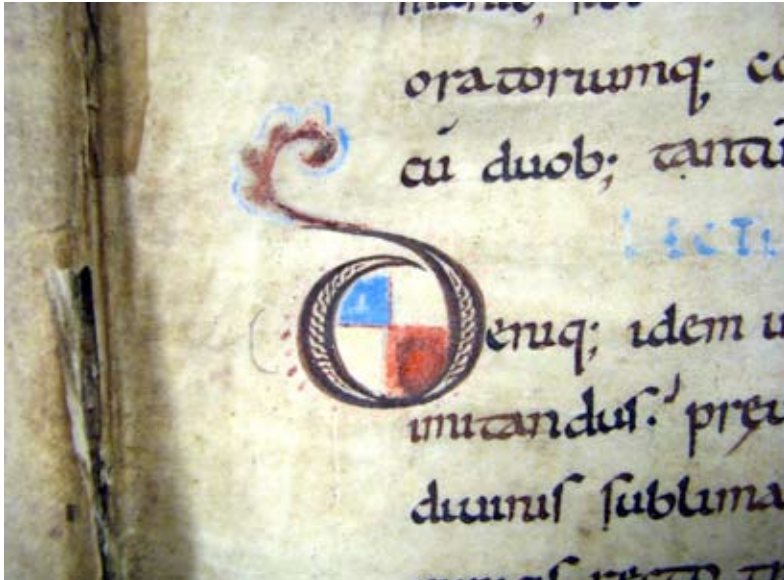 oratoriumq; co
cū duob; tantū
LECTI
Deniq; idem u
imitandus. preu
diuinis sublima